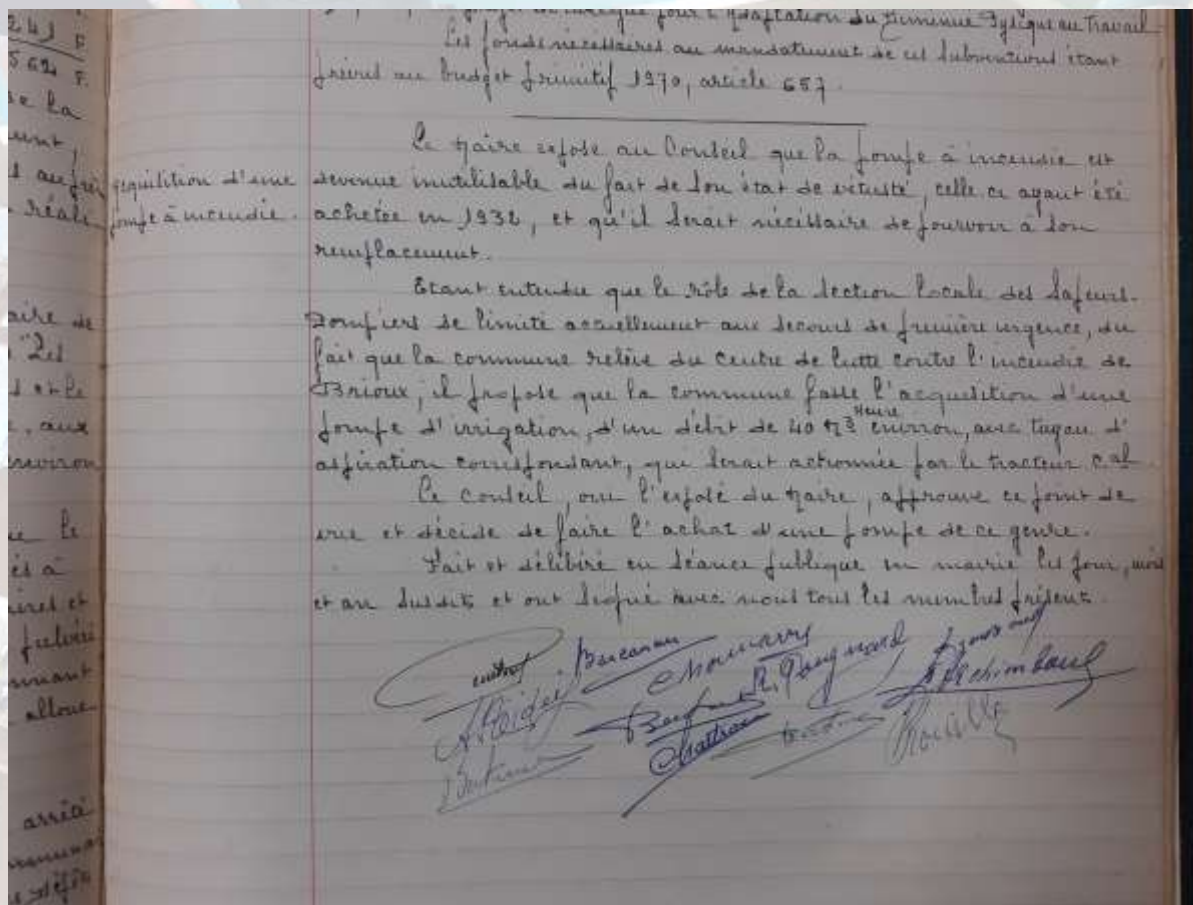 241 F
562 F.
de la
réali
aire de
"Les
s et le
, aux
environ
le
és à
et
allone
arrêté
pour l'Adaptation du Diminué Physique au Travail
Les fonds nécessaires au mandatement de ces subventions étant
prévus au budget primitif 1970, article 657.
Acquisition d'une
pompe à incendie.
Le Maire expose au Conseil que la pompe à incendie est
devenue inutilisable du fait de son état de vétusté, celle ci ayant été
achetée en 1932, et qu'il serait nécessaire de pourvoir à son
remplacement.
Etant entendu que le rôle de la Section locale des Sapeurs-
Pompiers se limite actuellement aux secours de première urgence, du
fait que la commune relève du Centre de lutte contre l'incendie de
Brioux, il propose que la commune fasse l'acquisition d'une
pompe d'irrigation, d'un débit de 40 M3 Heure environ, avec tuyau d'
aspiration correspondant, qui serait actionnée par le tracteur cal
Le Conseil, ouï l'exposé du Maire, approuve ce point de
vue et décide de faire l'achat d'une pompe de ce genre.
Fait et délibéré en séance publique en mairie les jour, mois
et an susdits et ont signé avec nous tous les membres présents.